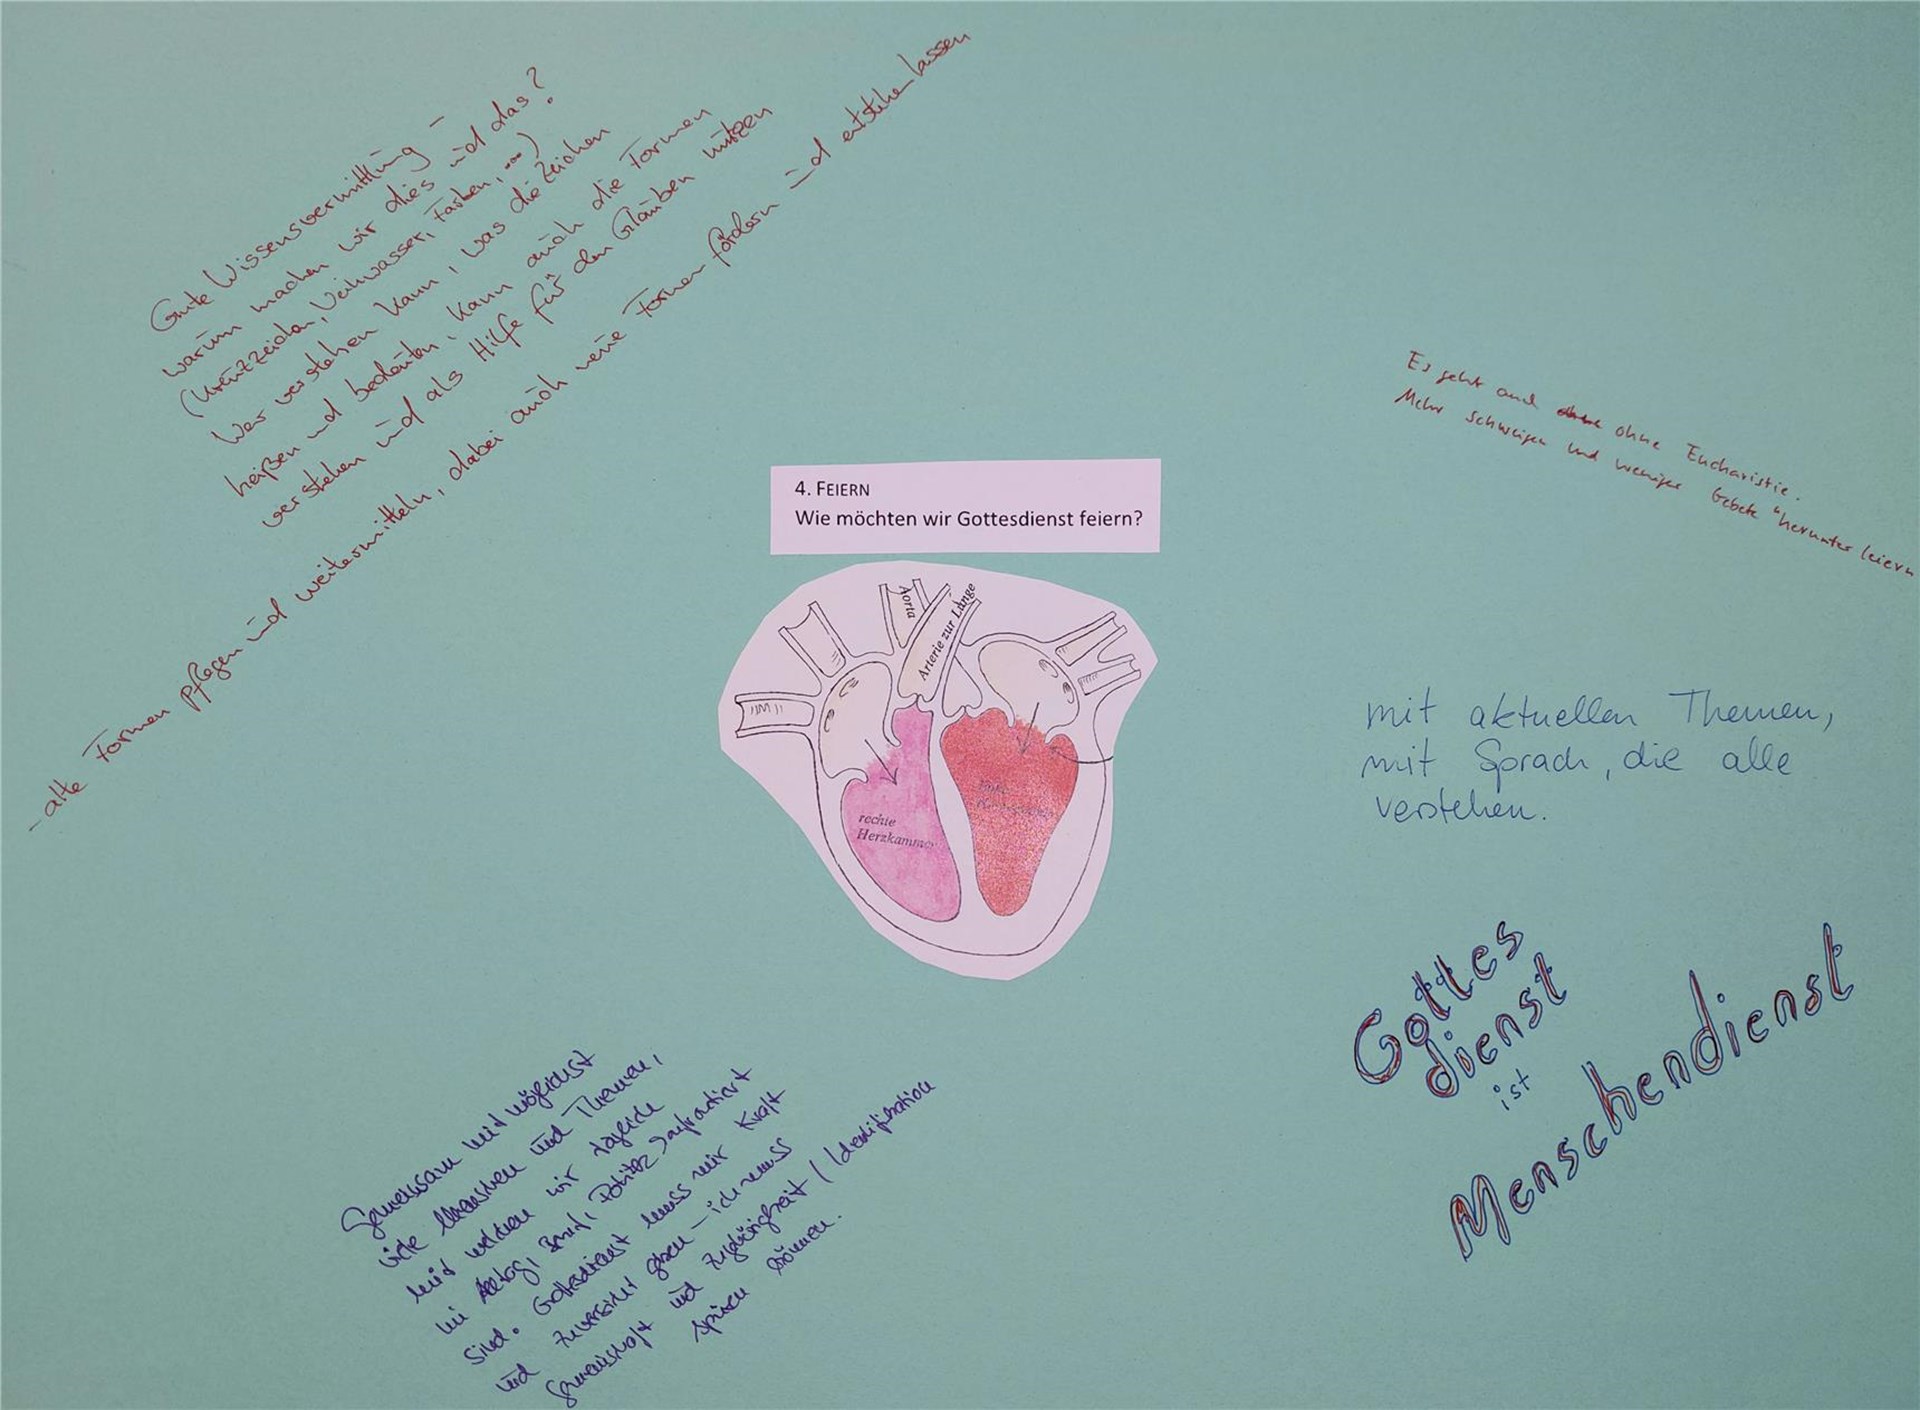 Gute Wissensvermittlung –
warum machen wir dies und das?
(Kreuzzeichen, Weihwasser, Farben, ...)
Wer verstehen kann, was die Zeichen
heißen und bedeuten, kann auch die Formen
verstehen und als Hilfe für den Glauben nützen
- alte Formen pflegen und weitermitteln, dabei auch neue Formen fördern und entstehen lassen
Es geht auch ohne Eucharistie.
Mehr schweigen und weniger Gebete "herunter leiern
4. FEIERN
Wie möchten wir Gottesdienst feiern?
Aorta
Arterie zur Lunge
rechte
Herzkammer
mit aktuellen Themen,
mit Sprach, die alle
verstehen.
Gottes
dienst
ist
Menschendienst
Gemeinsam mit möglichst
viele Menschen und Themen,
mit welchen wir täglich
im Alltag, Politik konfrontiert
sind. Gottesdienst muss mir Kraft
und Zuversicht geben – ich muss
Gemeinschaft und Zugehörigkeit / Identifikation
spüren können.